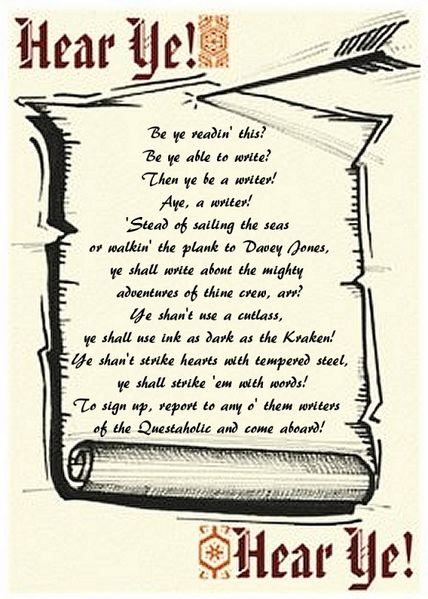 Hear Ye!
Be ye readin' this?
Be ye able to write?
Then ye be a writer!
Aye, a writer!
'Stead of sailing the seas
or walkin' the plank to Davey Jones,
ye shall write about the mighty
adventures of thine crew, arr?
Ye shan't use a cutlass,
ye shall use ink as dark as the Kraken!
Ye shan't strike hearts with tempered steel,
ye shall strike 'em with words!
To sign up, report to any o' them writers
of the Questaholic and come aboard!
Hear Ye!